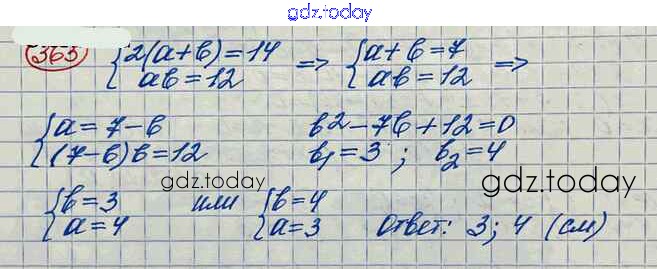 gdz.today
363 { 2(a+b)=14 => { a+b=7 =>
ab=12 ab=12
{ a=7-b b²-7b+12=0
(7-b)b=12 b₁=3; b₂=4
gdz.today gdz.today
{ b=3 или { b=4
a=4 a=3 Ответ: 3; 4 (см)